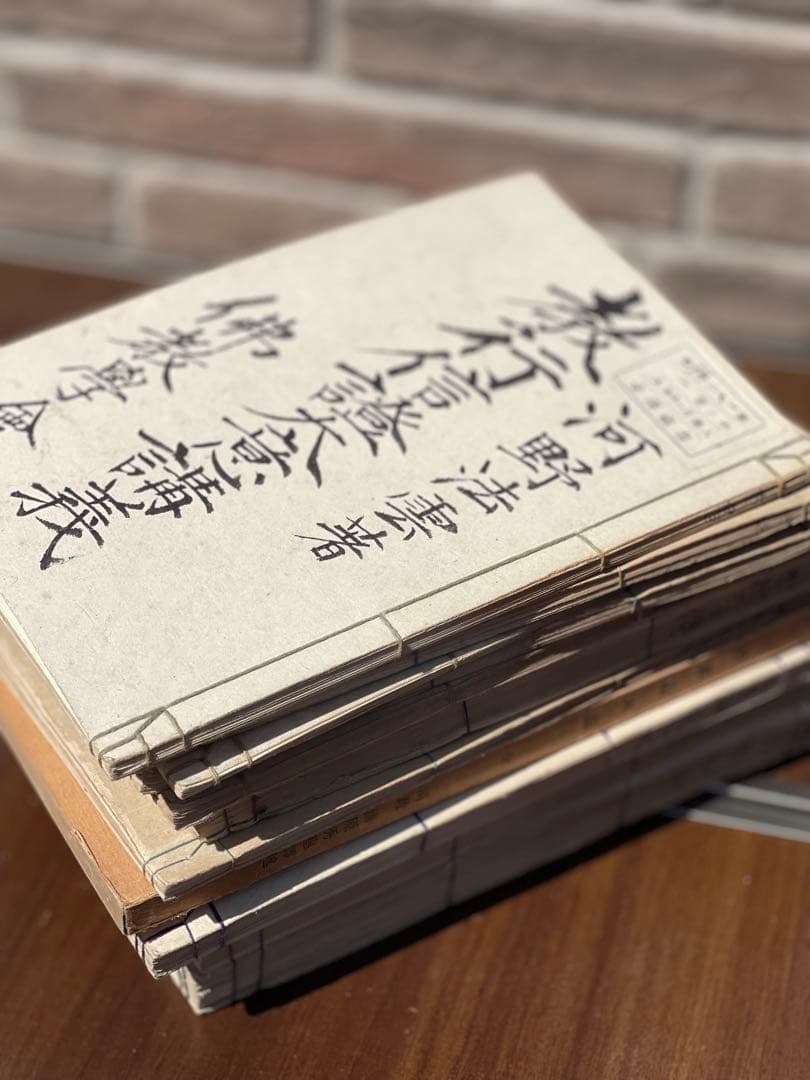 河野法雲著
教行信證大意講義
佛教學會